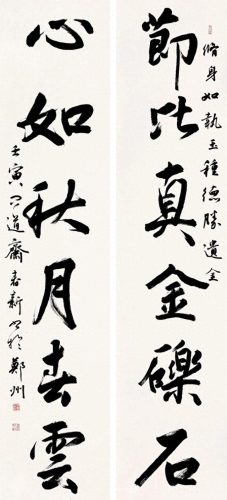 脩身如執玉種德勝遺金
節比真金礫石
心如秋月春雲
壬寅道齋春新於鄭州